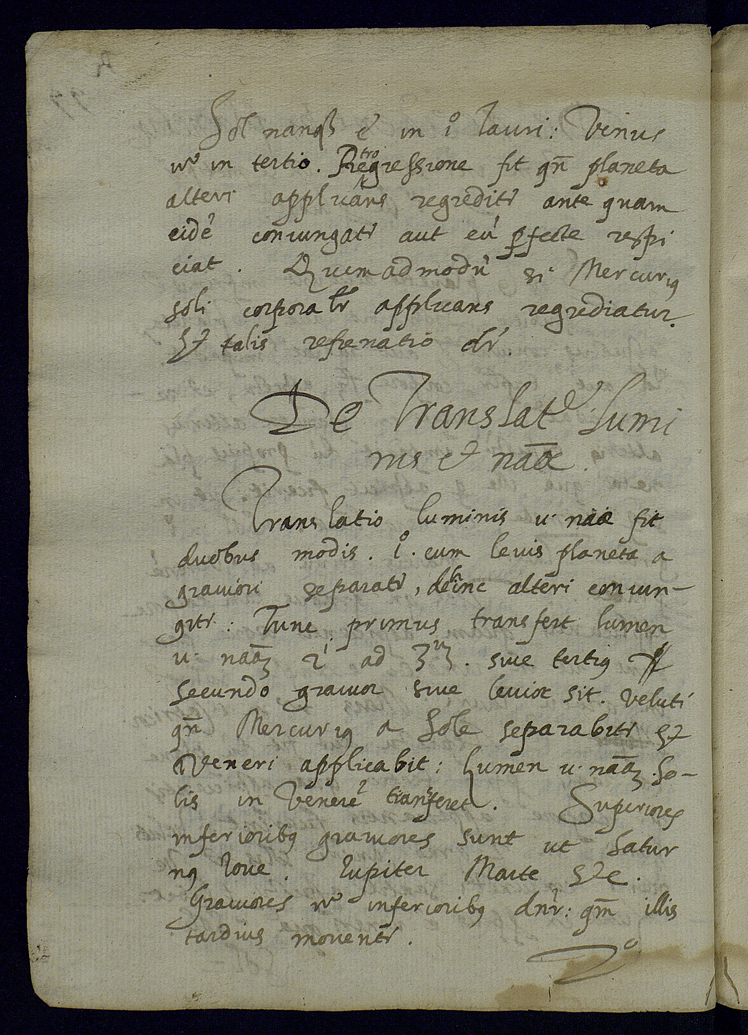 Sol nanq₃ ē in i° Tauri: Venus
v° in tertio. Retrogressione fit qn̄ planeta
alteri applicans regreditr̄ ante quam
eidē coniungatr̄ aut eū pfecte respi
ciat. Quemadmodū si Mercuriꝰ
soli corporalr̄ applicans regrediatur.
Et talis refrenatio dr̄.
De Translatē Lumi
nis et nāæ.
Translatio luminis u. nāæ fit
duobus modis. i°. cum levis planeta a
graviori separatr̄, dehinc alteri coniun-
gitr̄: Tunc primus transfert lumen
u. nāaʒ 2ⁱ ad 3ᵘʒ. sive tertiꝰ
secundo gravior sive levior sit. veluti
qn̄ Mercuriꝰ a Sole separabitr̄ et
Veneri applicabit: Lumen u. nāaʒ So-
lis in Venerē transferet. Superiores
inferioribꝰ graviores sunt ut Satur
nꝰ Iove. Iupiter Marte &c.
Graviores v° inferioribꝰ dnr̄: qm̄ illis
tardius moventr̄.